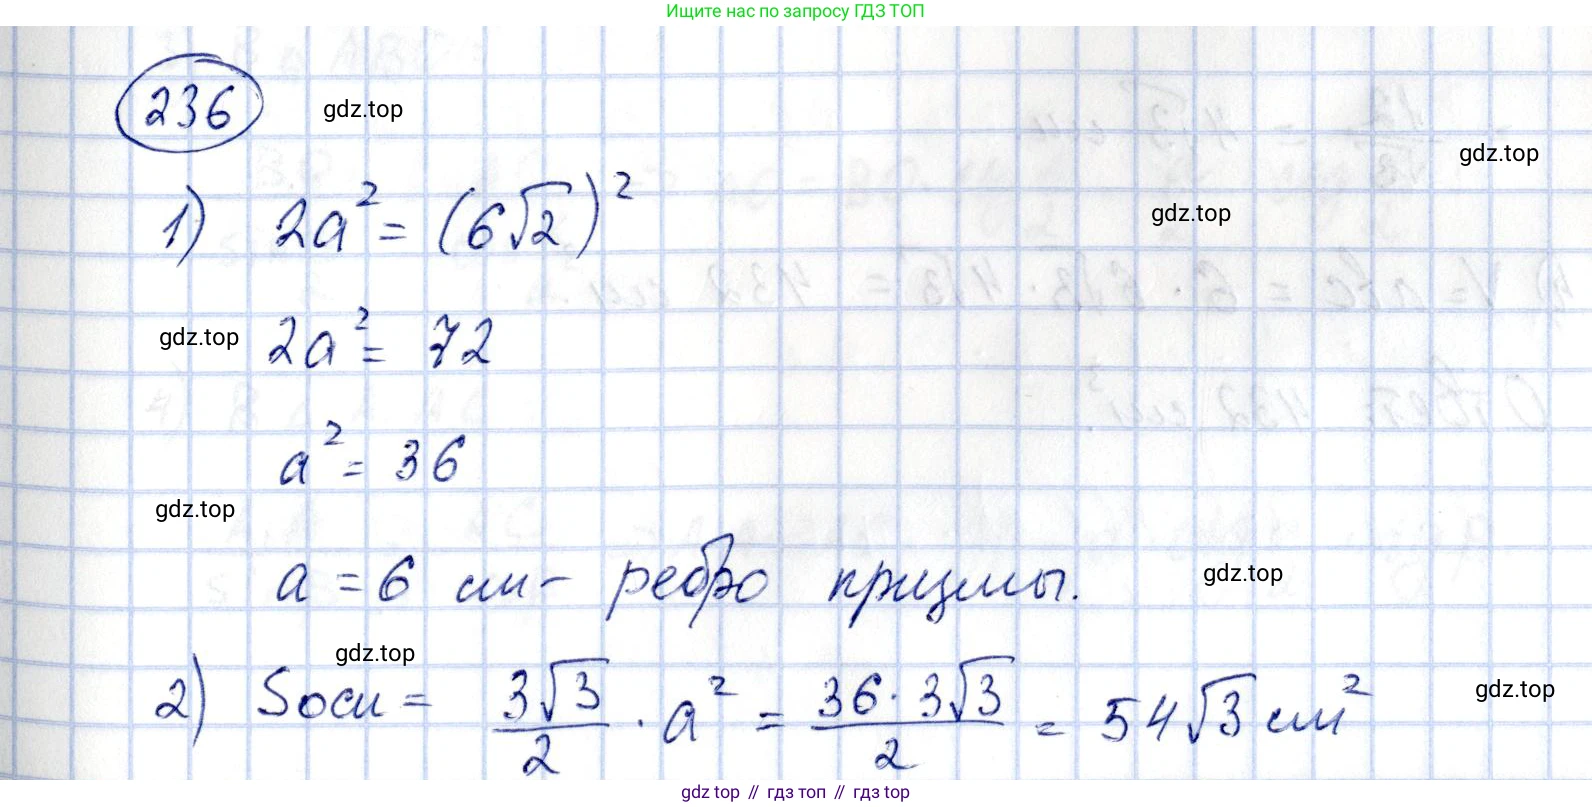 Ищите нас по запросу ГДЗ ТОП
236
gdz.top
gdz.top
1) 2a² = (6√2)²
gdz.top
gdz.top
2a² = 72
a² = 36
gdz.top
a = 6 см - ребро призмы.
gdz.top
gdz.top
2) Sосн = 3√3/2 · a² = 36·3√3/2 = 54√3 см²
gdz.top
gdz top // гдз топ // gdz top